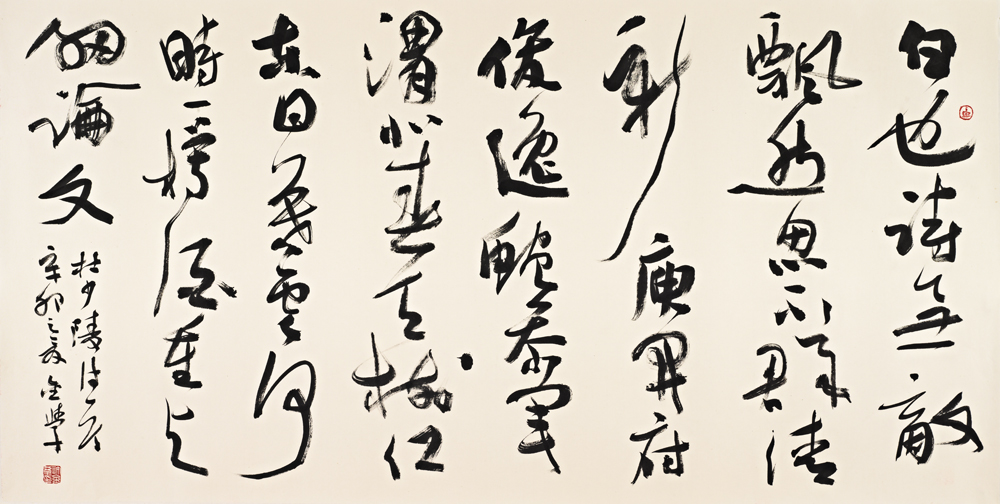 白也詩無敵
飄然思不群清
新庾開府
俊逸鮑參軍
渭北春天樹江
東日暮雲何
時一樽酒重與
細論文
杜少陵詩一首
辛卯之夏